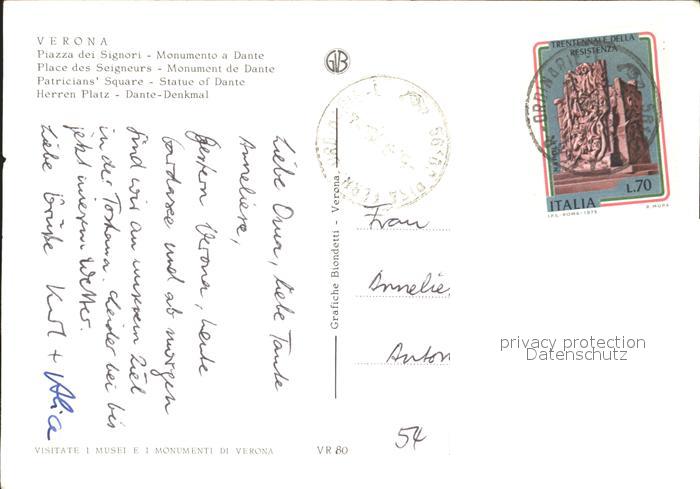 VERONA
Piazza dei Signori - Monumento a Dante
Place des Seigneurs - Monument de Dante
Patricians' Square - Statue of Dante
Herren Platz - Dante-Denkmal
GVB
Liebe Oma, liebe Tante
Anneliese,
Gestern Verona, heute
Gardasee und ab morgen
sind wir an unserem Ziel
in der Toskana. Leider bei bis
jetzt miesem Wetter.
Liebe Grüße Kurt + Alice
Grafiche Biondetti - Verona
TRENTENNALE DELLA
RESISTENZA
L.70
ITALIA
I.P.S. - ROMA - 1975
E. MURA
Frau
Annelie
Anton
54
privacy protection
Datenschutz
VISITATE I MUSEI E I MONUMENTI DI VERONA
VR 80